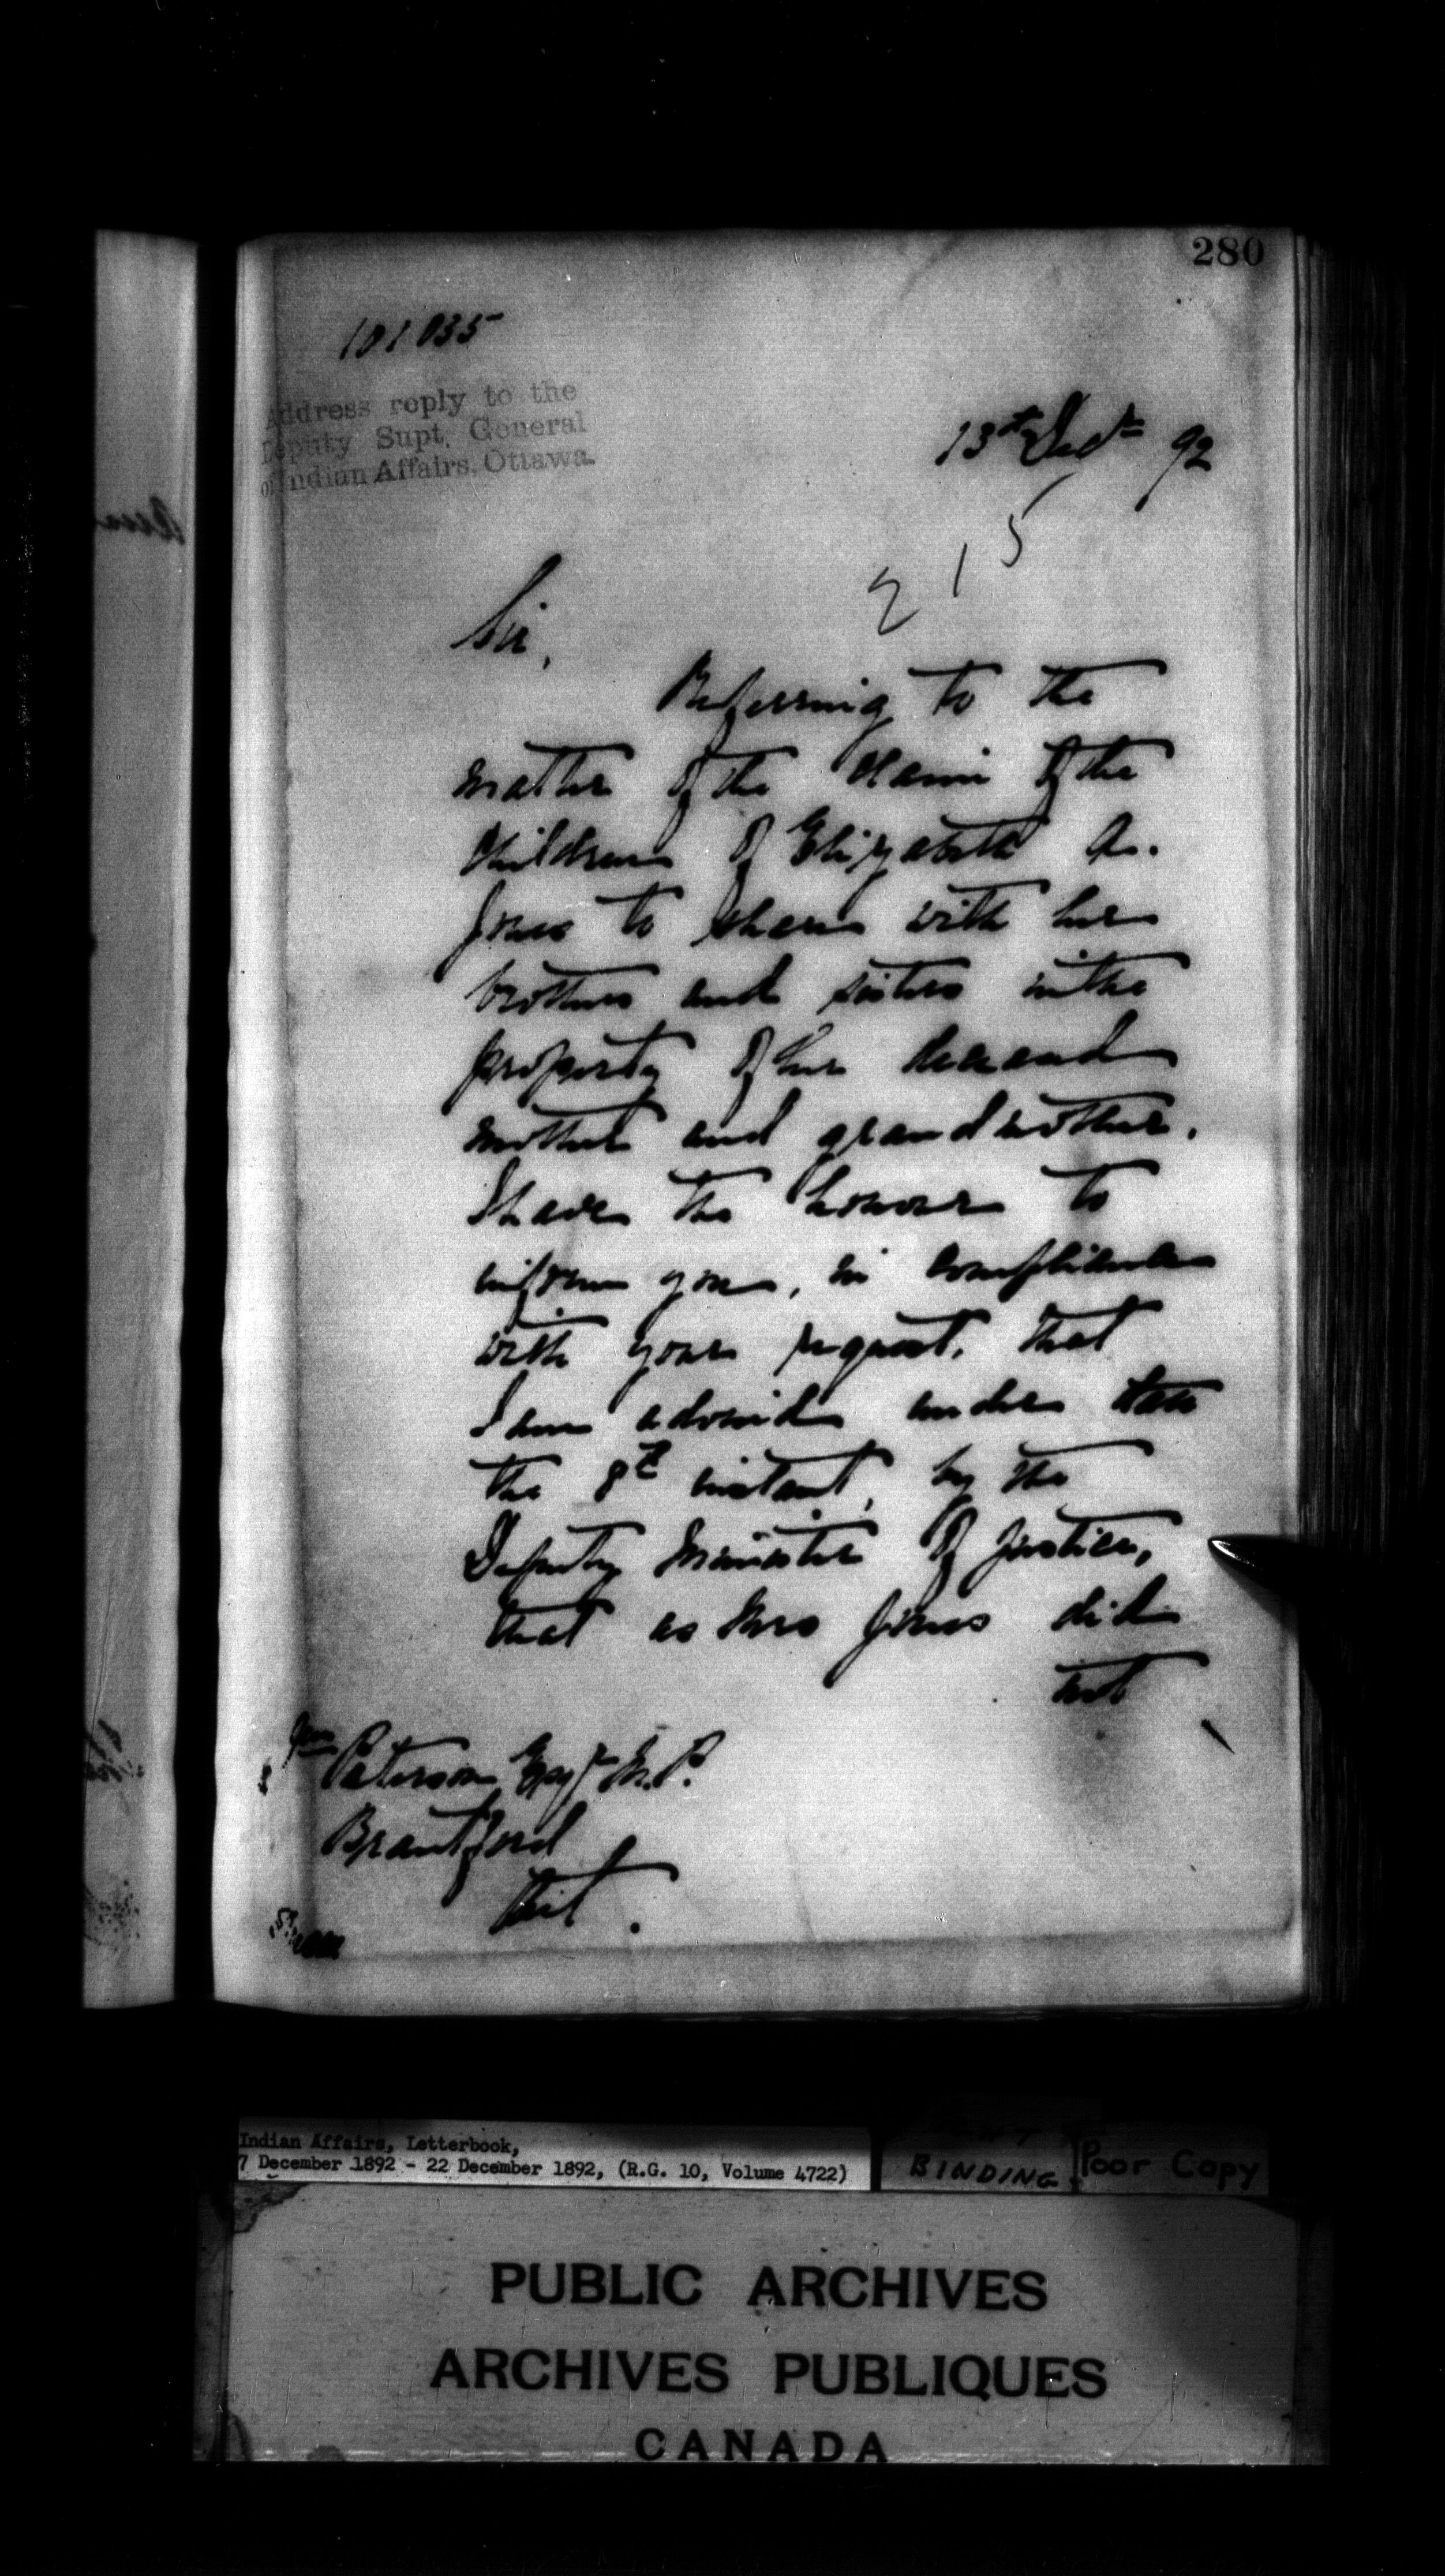 280
101035
Address reply to the
Deputy Supt. General
of Indian Affairs, Ottawa.
13th Decr 92
215
Sir,
Referring to the
matter of the claim of the
Children of Elizabeth A.
Jones to share with her
brothers and sisters in the
property of her deceased
mother and grandmother,
I have the honour to
inform you, in compliance
with your request, that
I am advised under date
the 8th instant, by the
Deputy Minister of Justice,
that as Mrs Jones did
not
Wm Paterson Esqr M.P.
Brantford
Ont.
Indian Affairs, Letterbook,
7 December 1892 - 22 December 1892, (R.G. 10, Volume 4722)
BINDING
Poor Copy
PUBLIC ARCHIVES
ARCHIVES PUBLIQUES
CANADA